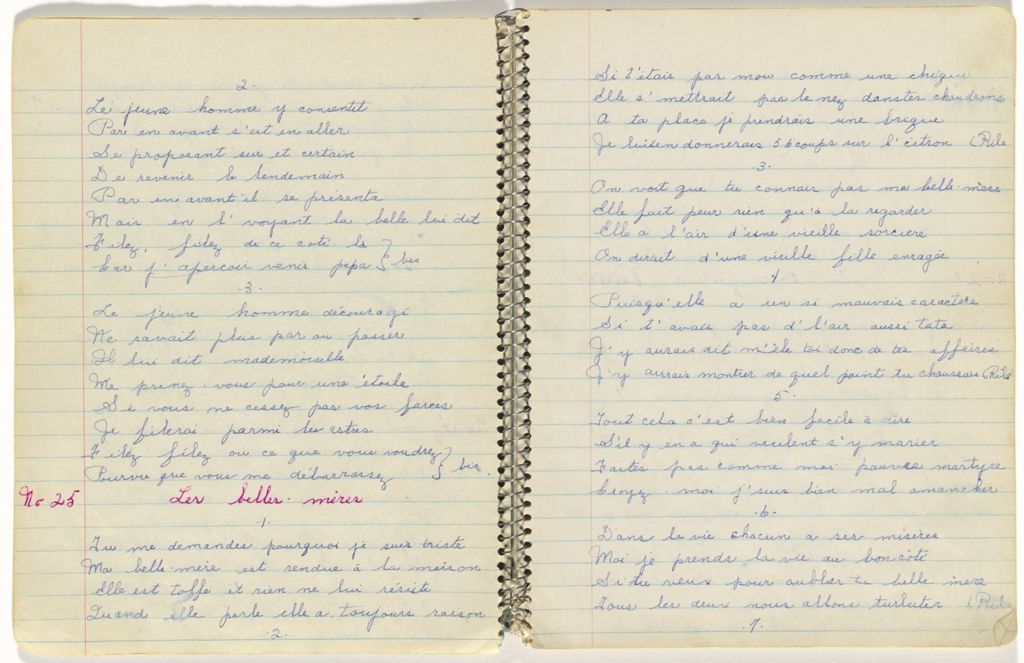 2.
Le jeune homme y consentit
Par en avant s'est en aller
Se proposant sur et certain
De revenir le lendemain
Par en avant il se présenta
Mais en l'voyant la belle lui dit
Filez, filez de ce coté là
Car j'apercoi venir papa } bis
.3.
Le jeune homme découragé
Ne savait plus par ou passer
Il lui dit mademoiselle
Me prenez-vous pour une étoile
Si vous ne cessez pas vos farces
Je filerai parmi les astres
Filez filez ou ce que vous voudrez
Pourvu que vous me débarrassez } bis
No 25 Les belles-mères
1
Tu me demandes pourquoi je suis triste
Ma belle-mère est rendue à la maison
Elle est toffe et rien ne lui résiste
Quand elle parle elle a toujours raison
.2.
Si t'étais pas mou comme une chique
Elle s'mettrait pas le nez dans tes chaudrons
A ta place je prendrais une brique
Je lui en donnerais 56 coups sur l'citron (Rile
.3.
On voit que tu connais pas ma belle-mère
Elle fait peur rien qu'à la regarder
Elle a l'air d'une vieille sorcière
On dirait d'une vieille fille enragée
4
Puisqu'elle a un si mauvais caractère
Si t'avais pas d'l'air aussi tata
J'y aurais dit mêle toi donc de tes affaires
J'y aurais montrer de quel point tu chaussais (Rile
5.
Tout cela c'est bien facile à dire
S'il y en a qui veulent s'y marier
Faites pas comme moi pauvre martyre
Croyez-moi j'suis bien mal amancher
.6.
Dans la vie chacun a ses misères
Moi je prends la vie au bon coté
Si tu veux pour oublier ta belle mère
Tous les deux nous allons turluter (Rile
.7.